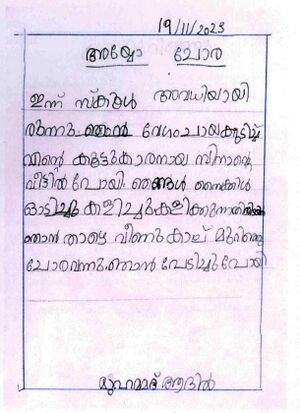 19/11/2023
അയ്യോ ചോര
ഇന്ന് സ്കൂൾ അവധിയായി
രുന്നു. ഞാൻ വേഗം ചായകുടിച്ച്
എന്റെ കൂട്ടുകാരനായ സിനാന്റെ
വീട്ടിൽ പോയി. ഞങ്ങൾ സൈക്കിൾ
ഓടിച്ചും കളിച്ചും കളിക്കുന്നതിനിടയിൽ
ഞാൻ താഴെ വീണു കാല് മുറിഞ്ഞു
ചോരവന്നു. ഞാൻ പേടിച്ചുപോയി
മുഹമ്മദ് ആദിൽ